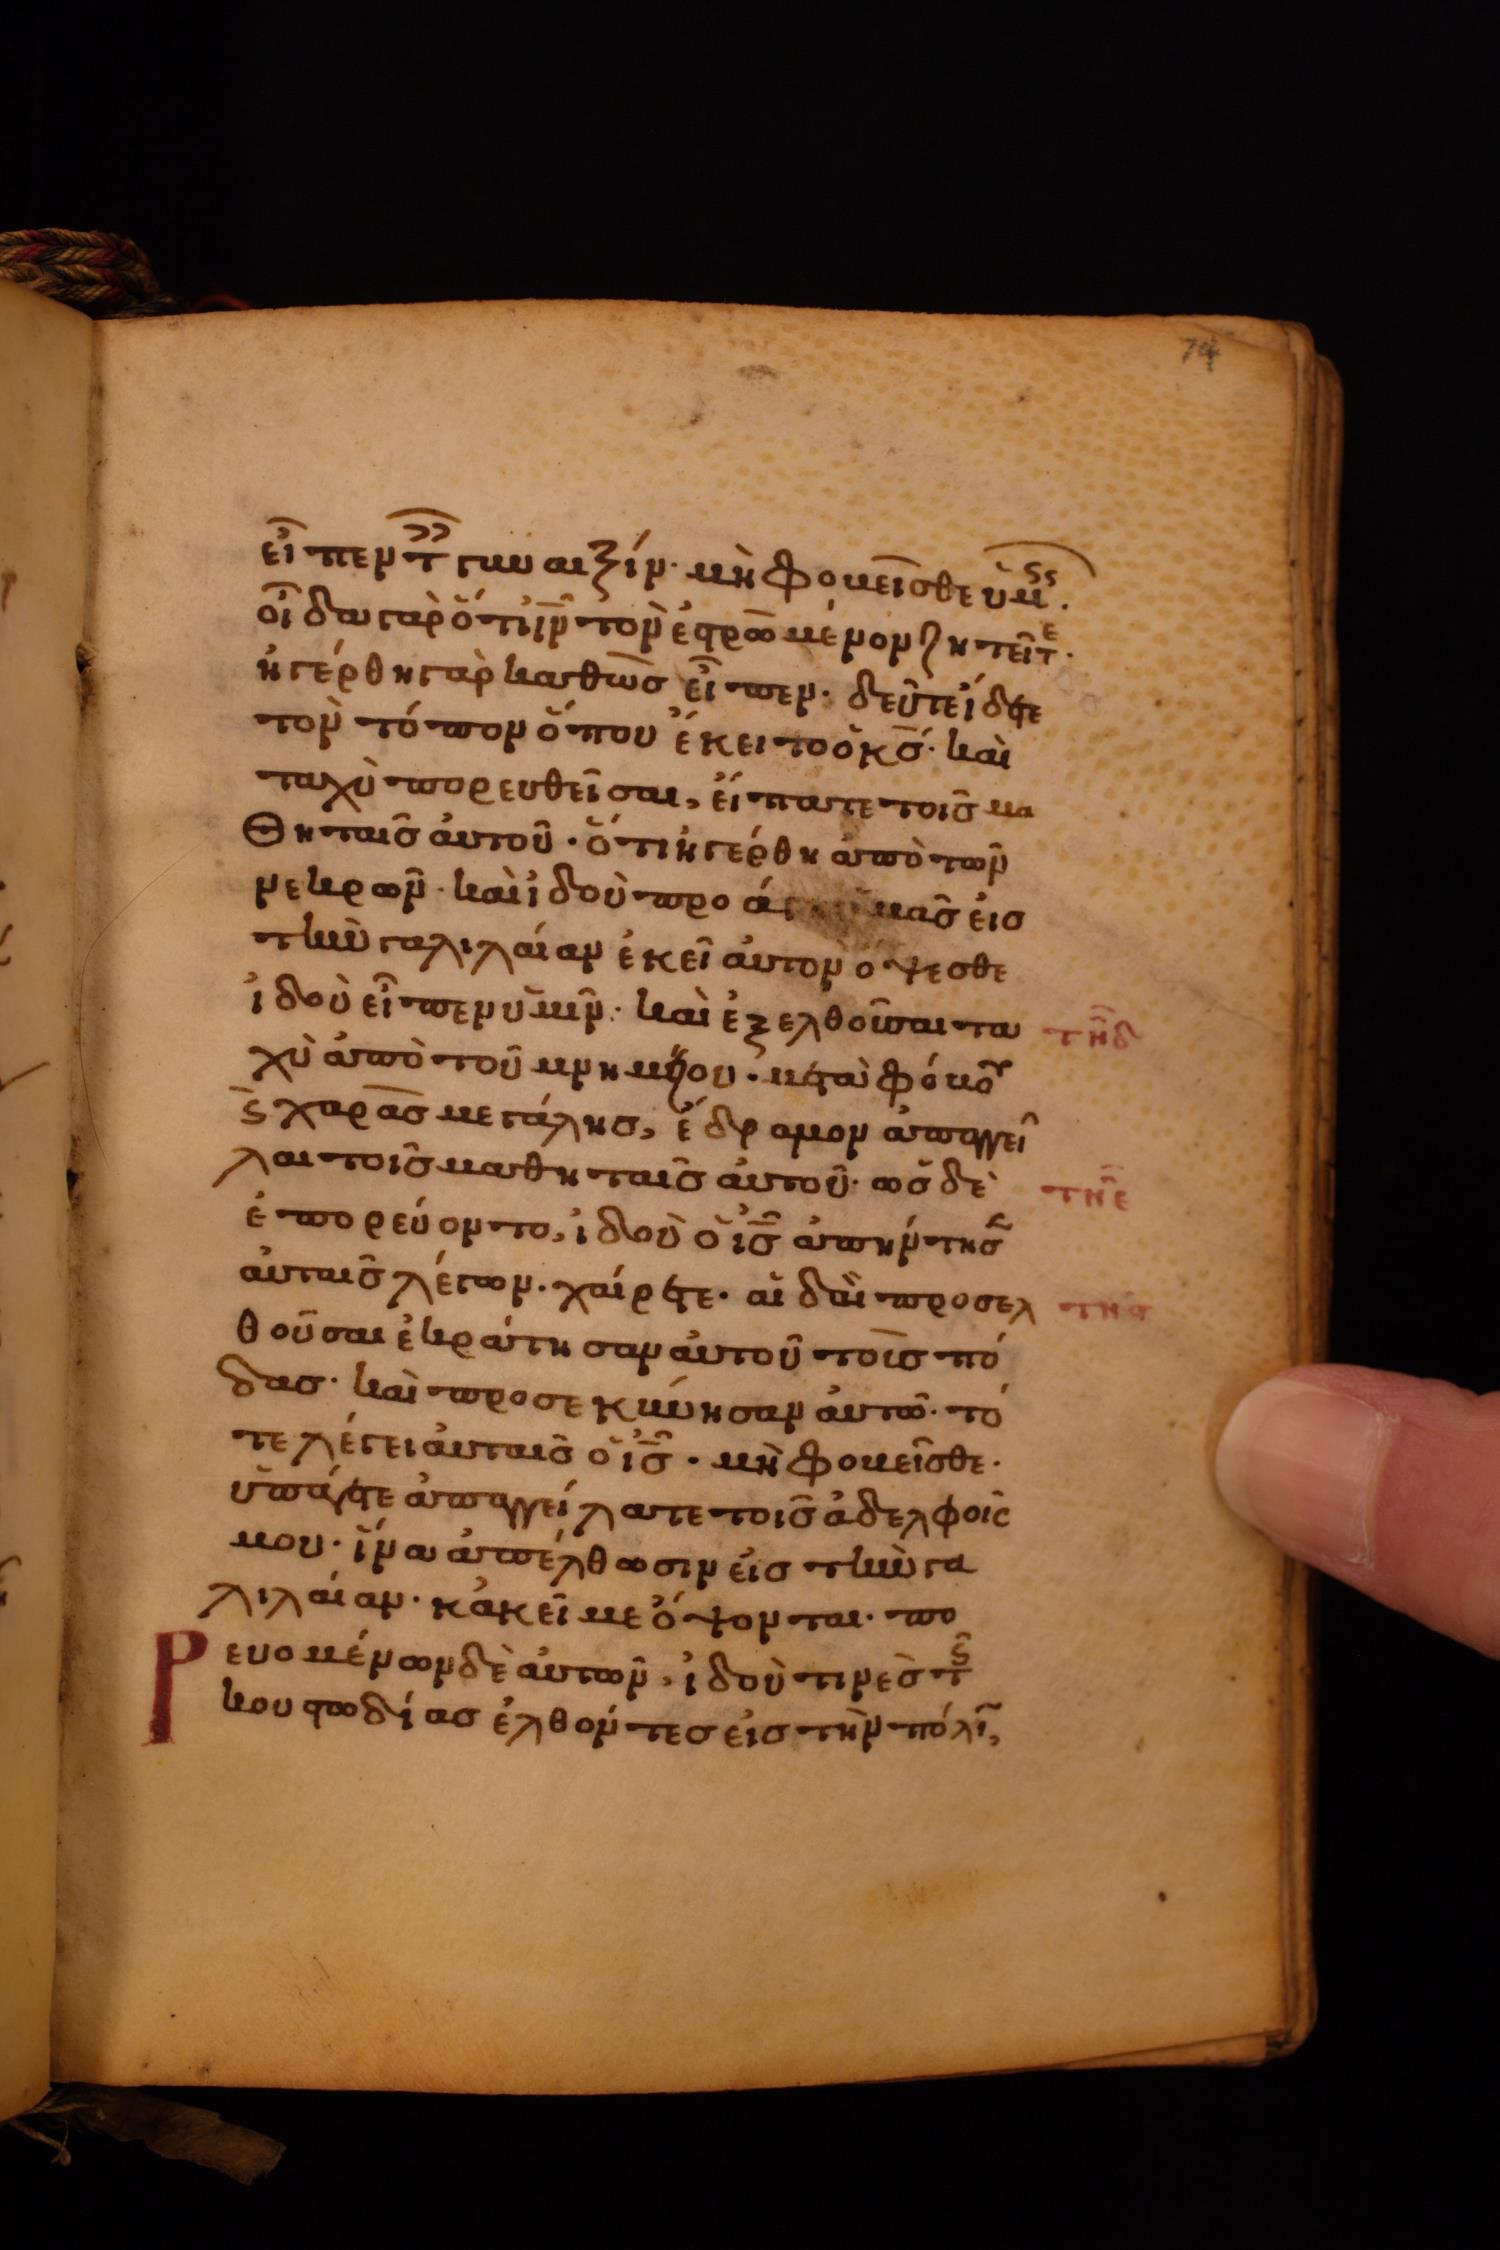 74
εἶπεν τ γυναιξίν· μὴ φοβεῖσθε ὑμ.
οἶδα γὰρ ὅτι ἰν τὸν ἐσταυρωμένον ζητεῖτ.
ἠγέρθη γὰρ καθὼς εἶπεν· δεῦτε ἴδετε
τὸν τόπον ὅπου ἔκειτο ὁ κς· καὶ
ταχὺ πορευθεῖσαι, εἴπατε τοῖς μα
θηταῖς αὐτοῦ· ὅτι ἠγέρθη ἀπὸ τῶν
νεκρῶν· καὶ ἰδοὺ προάγ ὑμᾶς εἰς
τὴν γαλιλαίαν ἐκεῖ αὐτὸν ὄψεσθε
ἰδοὺ εἶπεν ὑμῖν· καὶ ἐξελθοῦσαι τα
τνδ
χὺ ἀπὸ τοῦ μνημείου· μετὰ φόβου
ϛ χαρᾶς μεγάλης, ἔδραμον ἀπαγγεῖ
λαι τοῖς μαθηταῖς αὐτοῦ· ὡς δὲ
τνε
ἐπορεύοντο, ἰδοὺ ὁ ἰς ἀπήντησεν
αὐταῖς λέγων· χαίρετε· αἱ δὲ προσελ
τνϛ
θοῦσαι ἐκράτησαν αὐτοῦ τοὺς πό
δας· καὶ προσεκύνησαν αὐτῷ· τό
τε λέγει αὐταῖς ὁ ἰς· μὴ φοβεῖσθε·
ὑπάγετε ἀπαγγείλατε τοῖς ἀδελφοῖς
μου· ἵνα ἀπέλθωσιν εἰς τὴν γα
λιλαίαν· κἀκεῖ με ὄψονται· πο
Ρευομένων δὲ αὐτῶν, ἰδοὺ τινὲς τ
κουστωδίας ἐλθόντες εἰς τὴν πόλιν,